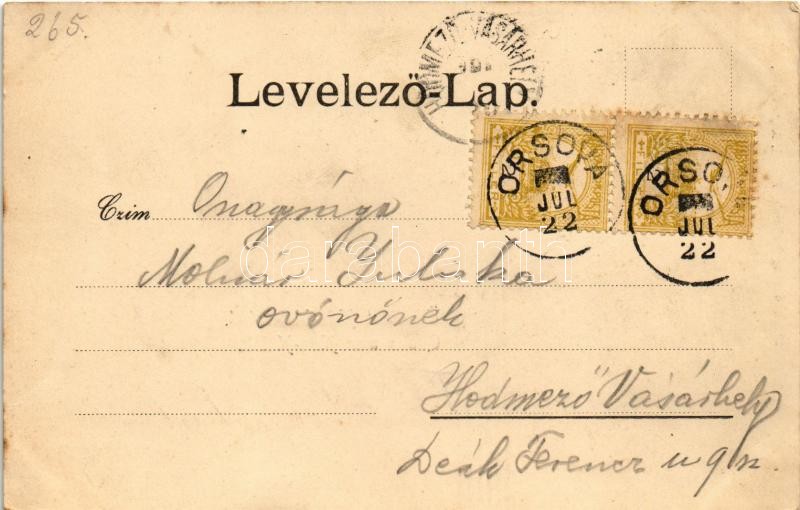 265.
HÓDMEZŐ-VÁSÁRHELY
Levelező-Lap.
ORSOVA
JUL
22
ORSO
JUL
22
Czim Önagysága
Molnár Juliska
óvónőnek
Hodmező Vásárhely
Deák Ferencz u 9 sz.
darabanth